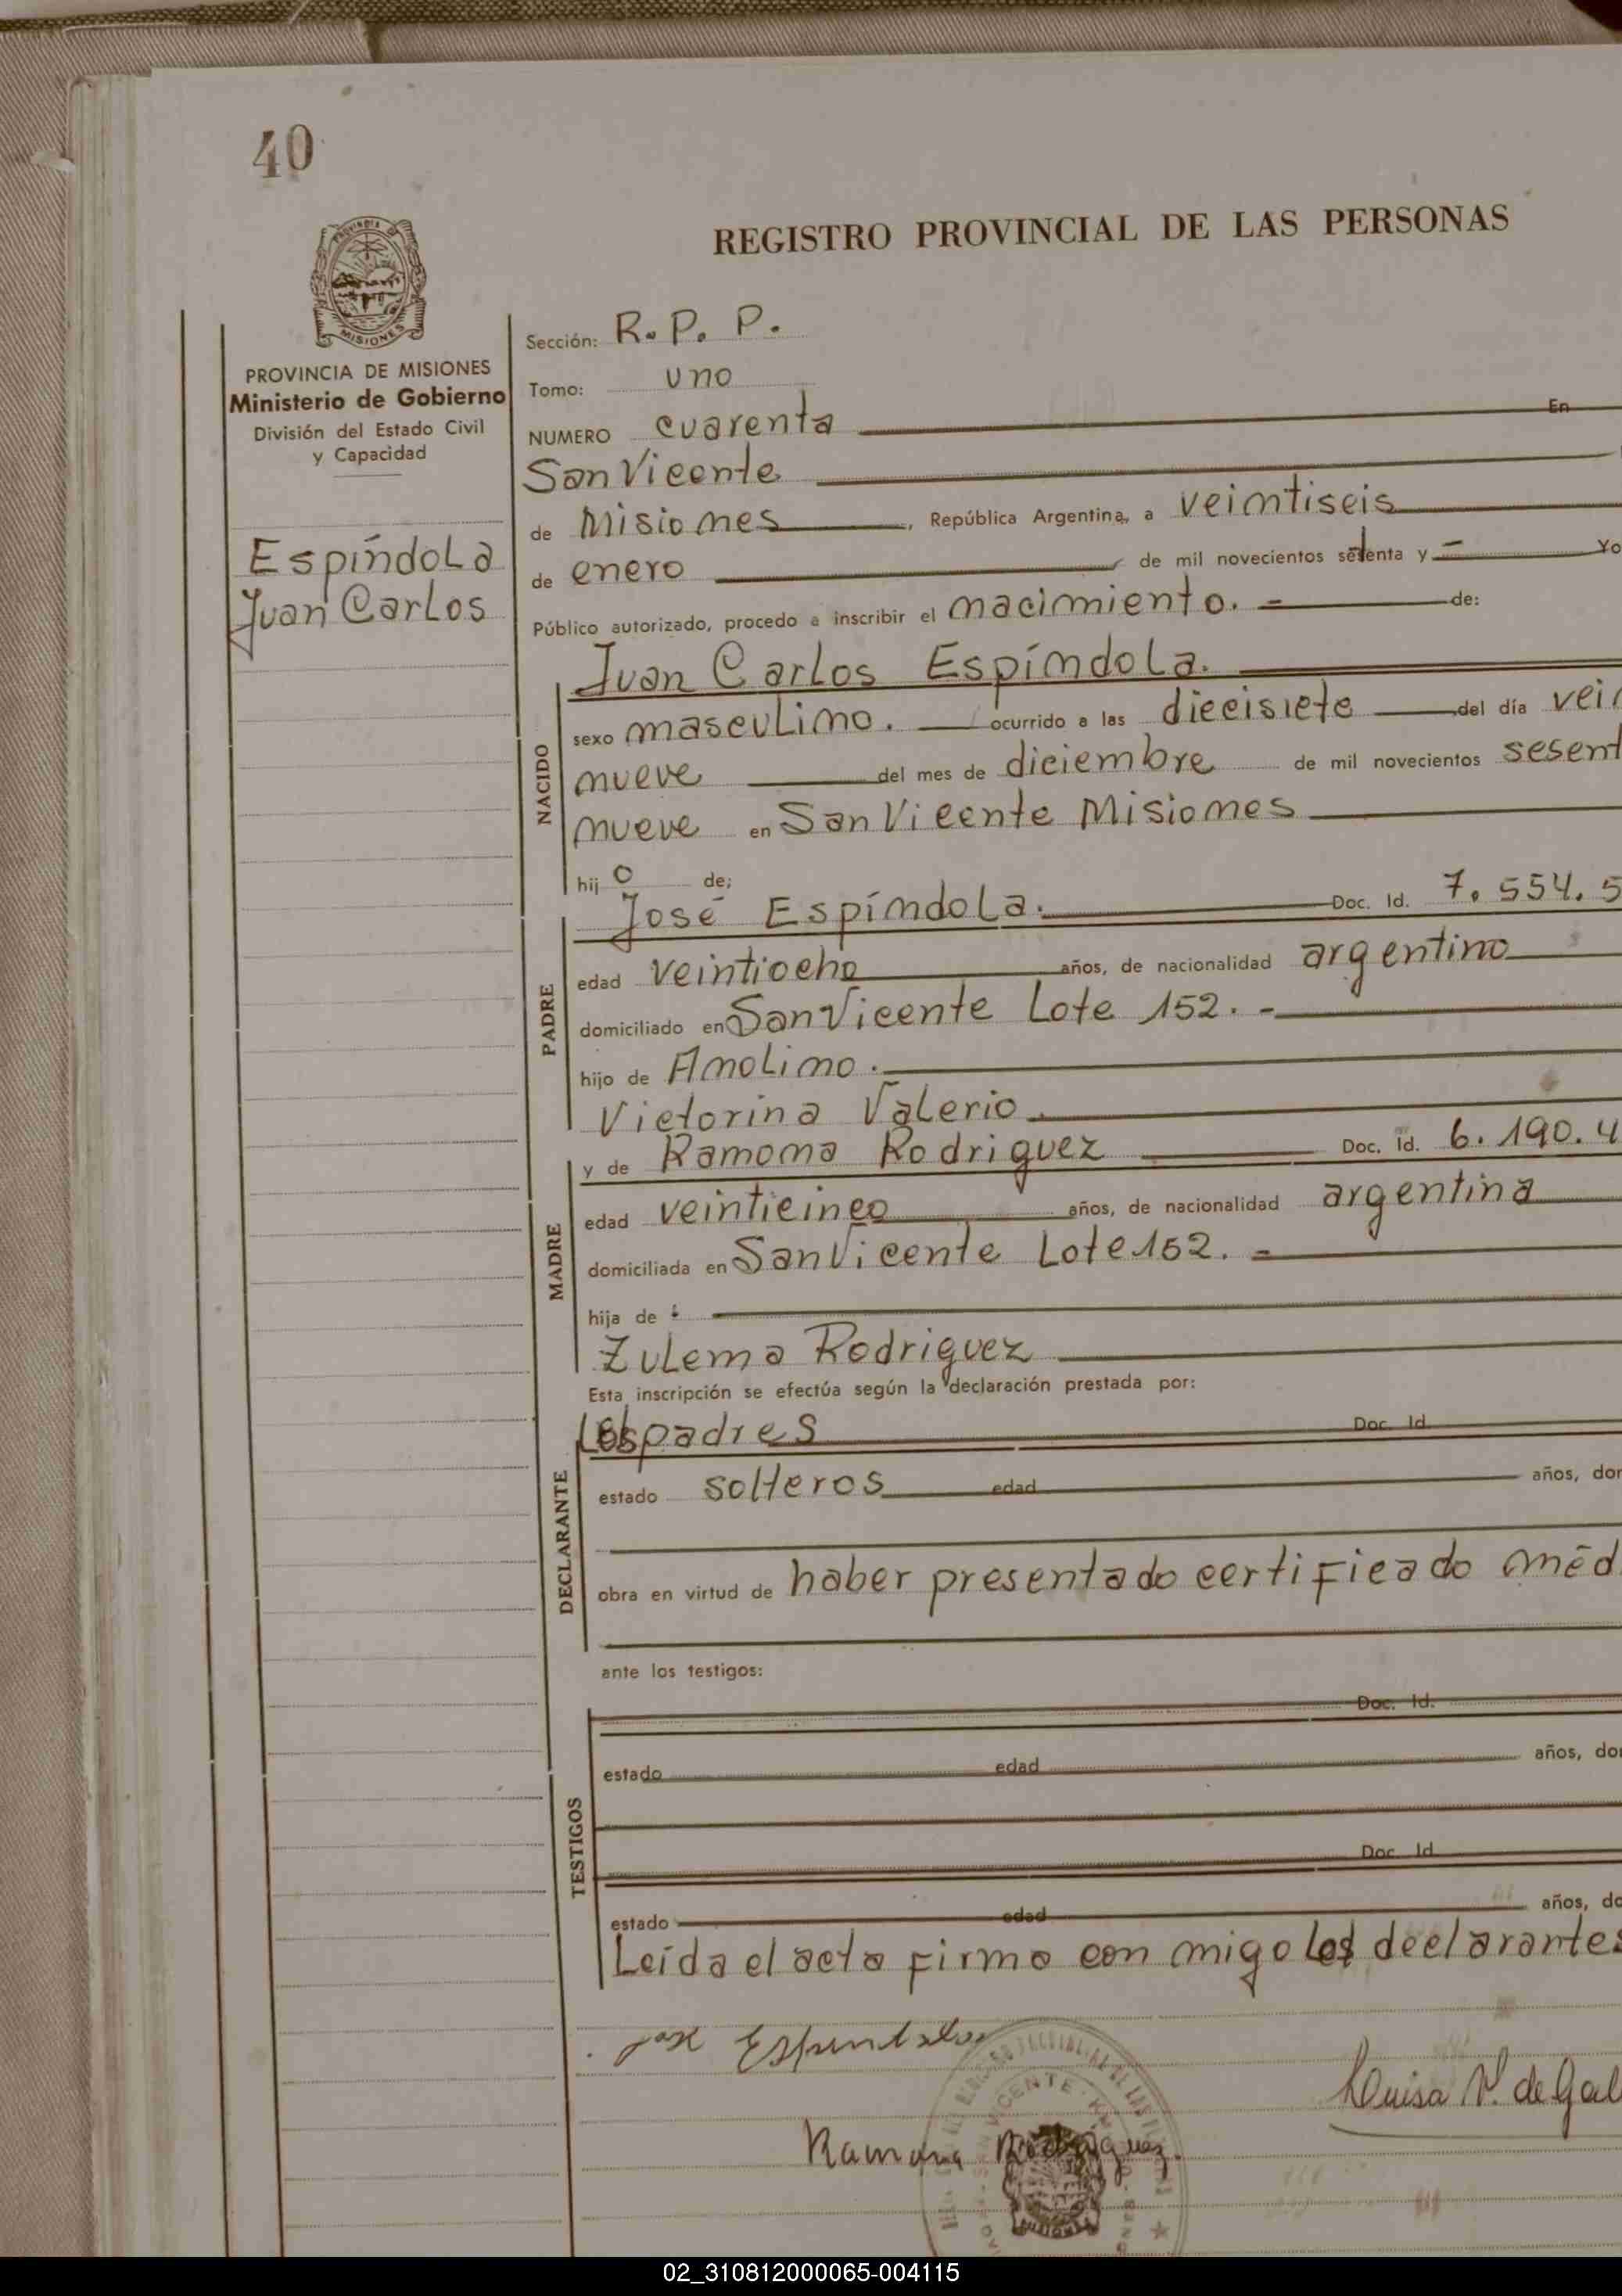 40
REGISTRO PROVINCIAL DE LAS PERSONAS
MISIONES
PROVINCIA DE MISIONES
Ministerio de Gobierno
División del Estado Civil
y Capacidad
Espíndola
Juan Carlos
Sección: R. P. P.
Tomo: uno
NUMERO cuarenta En
San Vicente
de Misiones, República Argentina, a veintiseis
de enero de mil novecientos setenta y - Yo
Público autorizado, procedo a inscribir el nacimiento. - de:
NACIDO
Juan Carlos Espíndola.
sexo masculino. ocurrido a las diecisiete del día
nueve del mes de diciembre de mil novecientos
nueve en San Vicente Misiones
hijo de;
PADRE
José Espíndola. Doc. Id. 7.554.5
edad veintiocho años, de nacionalidad argentino
domiciliado en San Vicente Lote 152. -
hijo de Anolino.
Victorina Valerio.
MADRE
y de Ramona Rodriguez Doc. Id. 6.190.4
edad veinticinco años, de nacionalidad argentina
domiciliada en San Vicente Lote 152. -
hija de
Zulema Rodriguez
Esta inscripción se efectúa según la declaración prestada por:
DECLARANTE
Los padres Doc. Id.
estado solteros edad años, dom
obra en virtud de haber presentado certificado méd
ante los testigos:
TESTIGOS
Doc. Id.
estado edad años, do
Doc. Id.
estado edad años, do
Leída el acta firma con migo los declarantes
José Espindola
Luisa V. de Gal
Ramona Rodriguez.
02_310812000065-004115